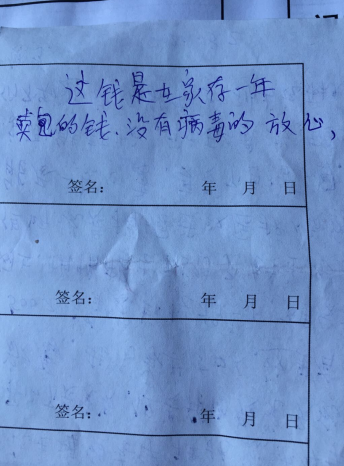 这钱是在家存一年
卖的钱.没有病毒的 放心,
签名: 年 月 日
签名: 年 月 日
签名: 年 月 日